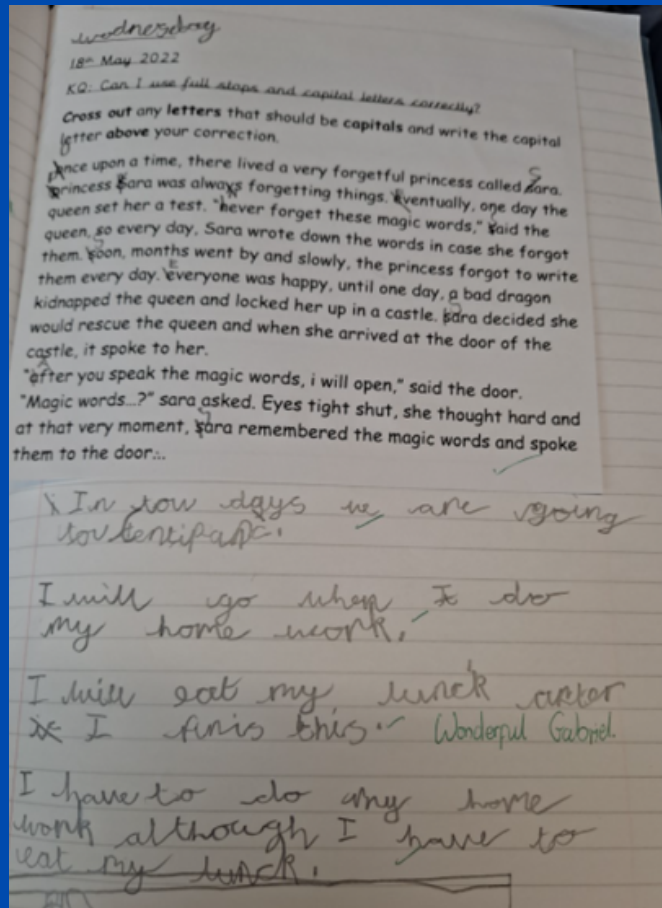 wednesday
18th May 2022
KQ: Can I use full stops and capital letters correctly?
Cross out any letters that should be capitals and write the capital
letter above your correction.
once upon a time, there lived a very forgetful princess called Sara.
princess Sara was always forgetting things. Eventually, one day the
queen set her a test. "never forget these magic words," said the
queen, so every day, Sara wrote down the words in case she forgot
them. soon, months went by and slowly, the princess forgot to write
them every day. everyone was happy, until one day, a bad dragon
kidnapped the queen and locked her up in a castle. sara decided she
would rescue the queen and when she arrived at the door of the
castle, it spoke to her.
"after you speak the magic words, i will open," said the door.
"Magic words...?" sara asked. Eyes tight shut, she thought hard and
at that very moment, sara remembered the magic words and spoke
them to the door...
In tow days we are going
I will go when I do
my home work.
I will eat my lunck arter
I finis this. Wonderful Gabriel.
I have to do my home
work although I have to
eat my lunck.